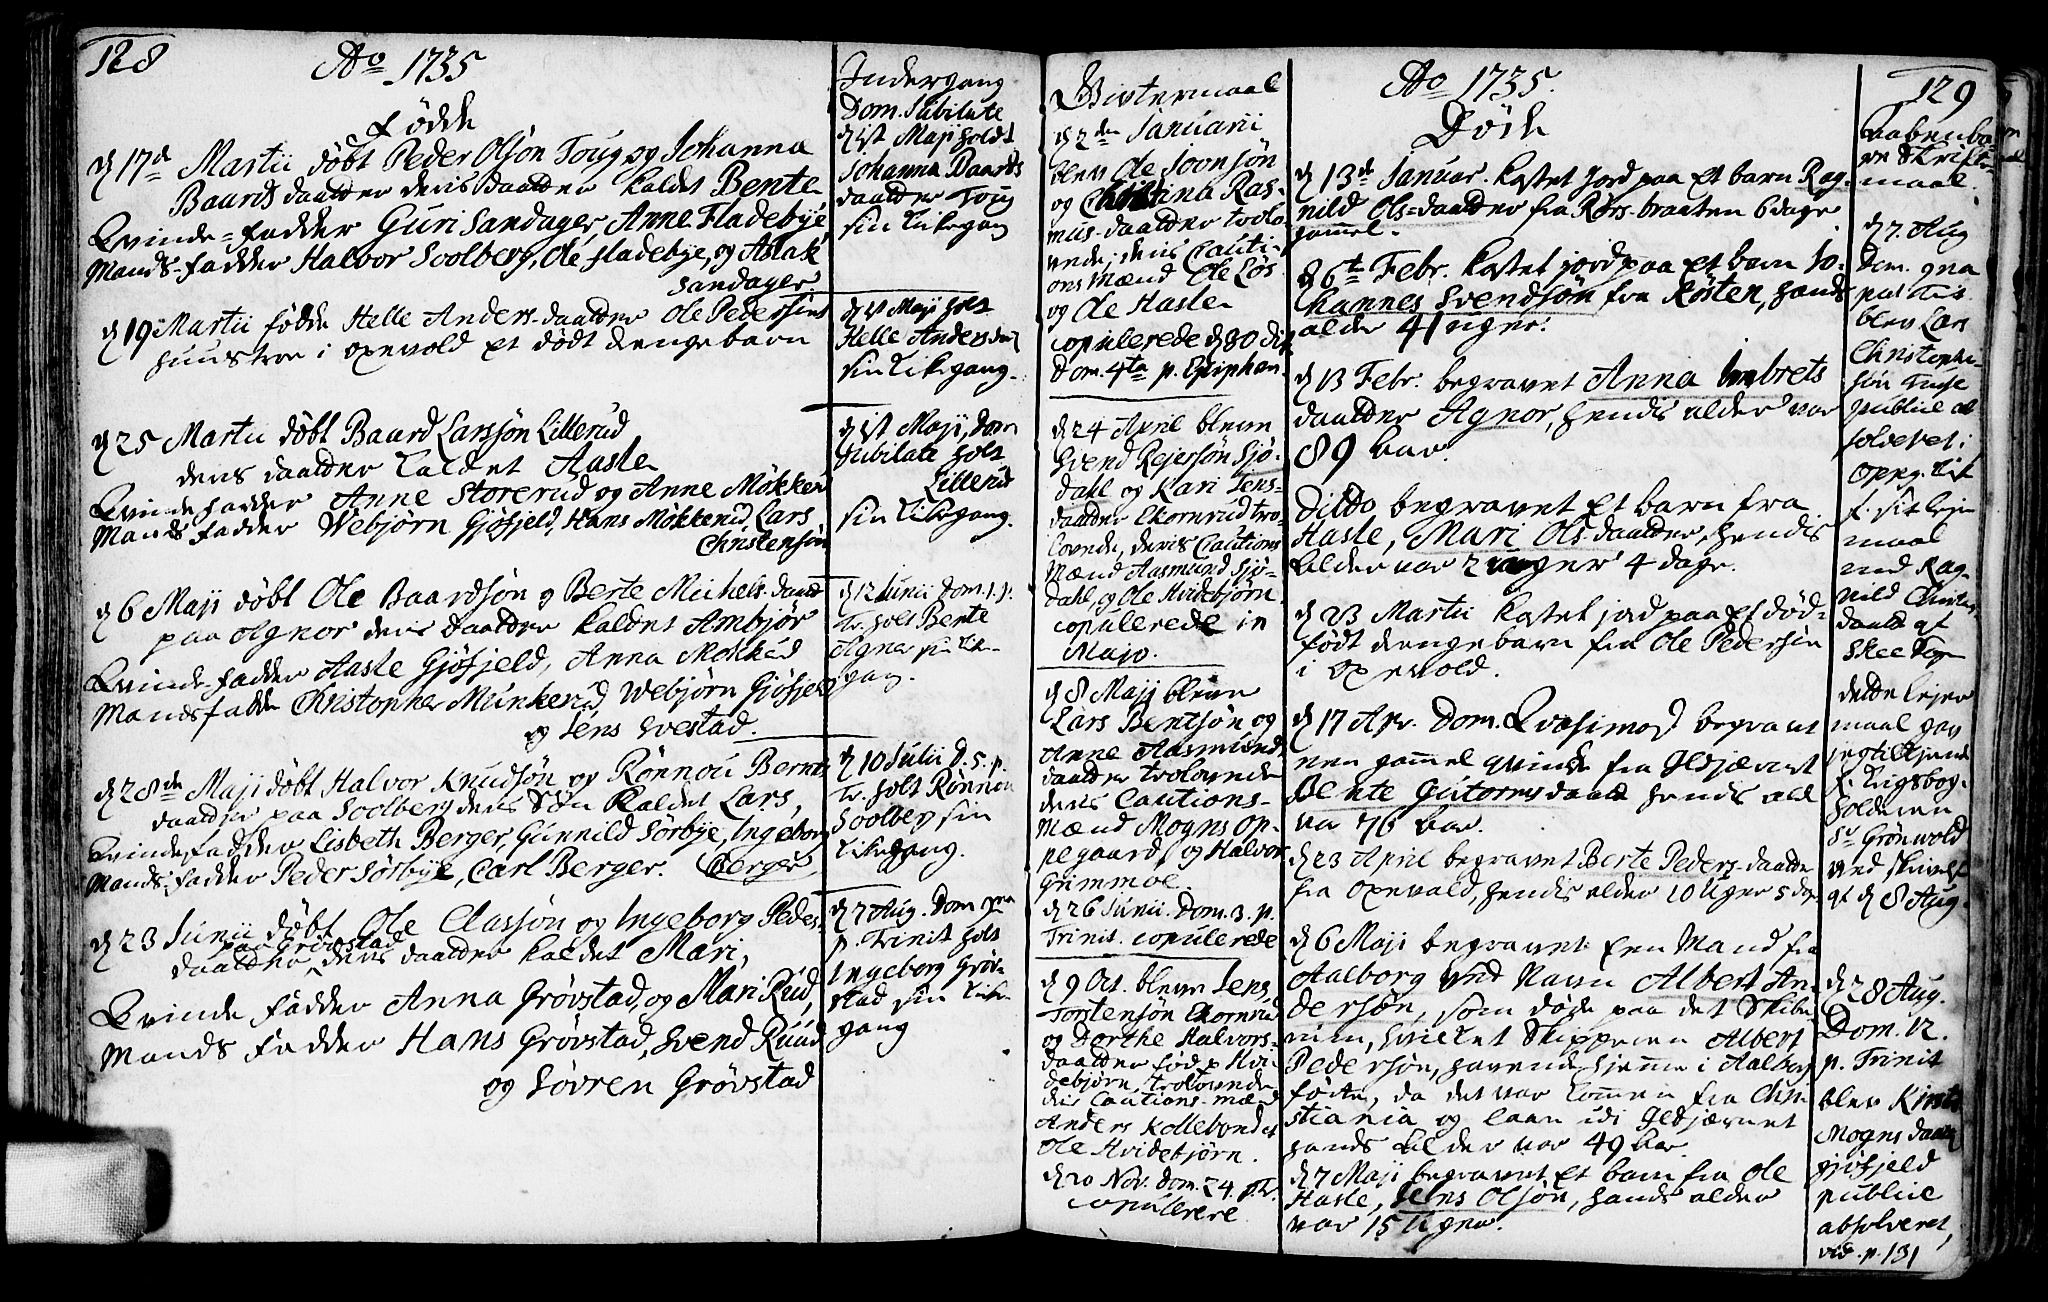 128
Ao 1735
Fødde
d 17de Martii døbt Peder Olsøn Toug og Johanna
Baards daatter deris daatter kaldet Bente
Kvinde-fadder Guri Sandager, Anne Fladebye,
Mands-fadder Halvor Soolberg, Ole fladebye, og Aslak
Sandager.
d 19 Martii fødde Helle Anders-daatter Ole Pedersens
huustroe i Oxevold et dødt drengebarn
d 25 Martii døbt Baard Larssøn Lillerud
deris daatter kaldet Aasle
Kvinde fadder Anne Storerud og Anne Mökkerud
Mands fadder Webjørn Gjøfjeld, Hans Mökkerud, Lars
Christensøn
d 6 Maji døbt Ole Baardsøn og Berte Michels-daatt
paa Agnor deris daatter kaldet Ambjør
Kvinde fadder Aasle Gjøfjeld, Anna Mökkerud
Mandsfadder Christopher Munkerud, Webjørn Gjøfjeld
og Jens Svestad.
d 28de Maji døbt Halvor Knudsøn og Rønnou Bernts
daatter paa Soolberg deris Søn kaldet Lars,
Kvinde fadder Lisbeth Berger, Gunnild Sørbye, Ingeborg
Mands-fadder Peder Sørbye, Carl Berger. Berger
d 23 Junii døbt Ole Classøn og Ingeborg Peders
paa Grøvstad
daatter, deris daatter kaldet Mari,
Kvinde fadder Anna Grøvstad, og Mari Rud,
Mands fadder Hans Grøvstad, Svend Ruud
og Søvren Grøvstad
Indergang
Dom. Jubilate
d 1st Maji holdt
Johanna Baards
daatter Toug
sin Kirkegang
d 1st Maji holt
Helle Anders dat
sin Kirkegang.
d 1st Maji, Dom
Jubilate holt
Lillerud
sin Kirkegang.
d 12 Junii Dom. 1. p.
Tr. holt Bente
Agnor sin Kir-
gang.
d 10 Julii D. 5. p.
Tr. holt Rønnou
Soolberg sin
Kirkegang.
d 7 Aug. Dom 9na
p. Trinit holt
Ingeborg Grøv-
stad sin Kirke
gang
Giftermaal
d 2den Januarii
blev Ole Joonsøn
og Christina Ras-
mus-daatter trolo-
vede; deris Cauti-
ons Mænd Ole Løs
og Ole Hasle
copulerede d 30 dito
Dom. 4ta p. Epiphan.
d 24 April bleve
Svend Rejersøn Sjø-
dahl og Kari Jens-
daatter Ekornrud tro-
lovede, deris Cautions
Mænd Aasmund Sjø-
dahl, og Ole Hvidebjørn.
copulerede in
Majo.
d 8 Maji bleve
Lars Bentsøn og
Anne Aasmunds
daatter trolovede
deris Cautions-
Mænd Mogns Op-
pegaard, og Halvor
Grimmoe.
d 26 Junii. Dom. 3. p.
Trinit. copulerede
d 9 Oct. bleve Jens
Torstensøn Ekornrud
og Dorthe Halvors-
daatter fød p Hvi-
debjørn, trolovede
deris Cautions-mænd
Anders Kollebond et
Ole Hvidebjørn.
d 20 Nov. Dom. 24. p. Tr.
copulerere
Ao 1735.
Døde
d 13de Januar. kastet jord paa et barn Rag-
nild Ols-daatter fra Rørs-braaten 6 dage
gammel.
d 6te Febr. kastet jord paa et barn Jo-
hannes Svendsøn fra Røsten, hands
alder 41 uger.
d 13 Febr. begravet Anna Imbrets
daatter Agnor, hendis alder var
89 Aar.
Ditto begravet et barn fra
Hasle, Mari Ols-daatter, hendis
Alder var 2 uger 4 dage.
d 23 Martii kastet jord paa et død-
født drengebarn fra Ole Pedersen
i Oxevold.
d 17 Apr. Dom. Qvasimod begravet
nen gammel qvinde fra Gedsjærnet
Bente Gutorms daatt hends ald
var 76 Aar.
d 23 April begravet Berte Peders-daatter
fra Oxevald, hendis alder 10 Uger 5 dage
d 6 Maji begravet een Mand fra
Aalborg ved Navn Albert An-
dersøn, som døde paa det Skib
nen, hvilket Skipperen Albert
Pedersøn, havende hjemme i Aalborg
førte, da det var kommen fra Chri-
stiania og laae udi Gedsjærnet
hands alder var 49 Aar.
d 7 Maji begravet et barn fra Ole
Hasle, Jens Olsøn, hands alder
var 15 Uger.
129
Aabenba-
re Skrifte-
maal.
d 7. Aug
Dom. 9na
post Tri
blev Lars
Christophe-
søn Tuse
publice ab
solveret;
f. sit leje
maal
med Rag-
nild Christ-
daatt at
skee
dette lejer
maal gav
jeg tilkiende
f. Tingsbog-
holderen
Sr Grönwold
ved skrivelse
af d 8 Aug.
d 28 Aug.
Dom. 12.
p. Trinit
blev Kirsti
Mogns daatter
gjøfjeld
publice
absolveret,
vid. p. 131